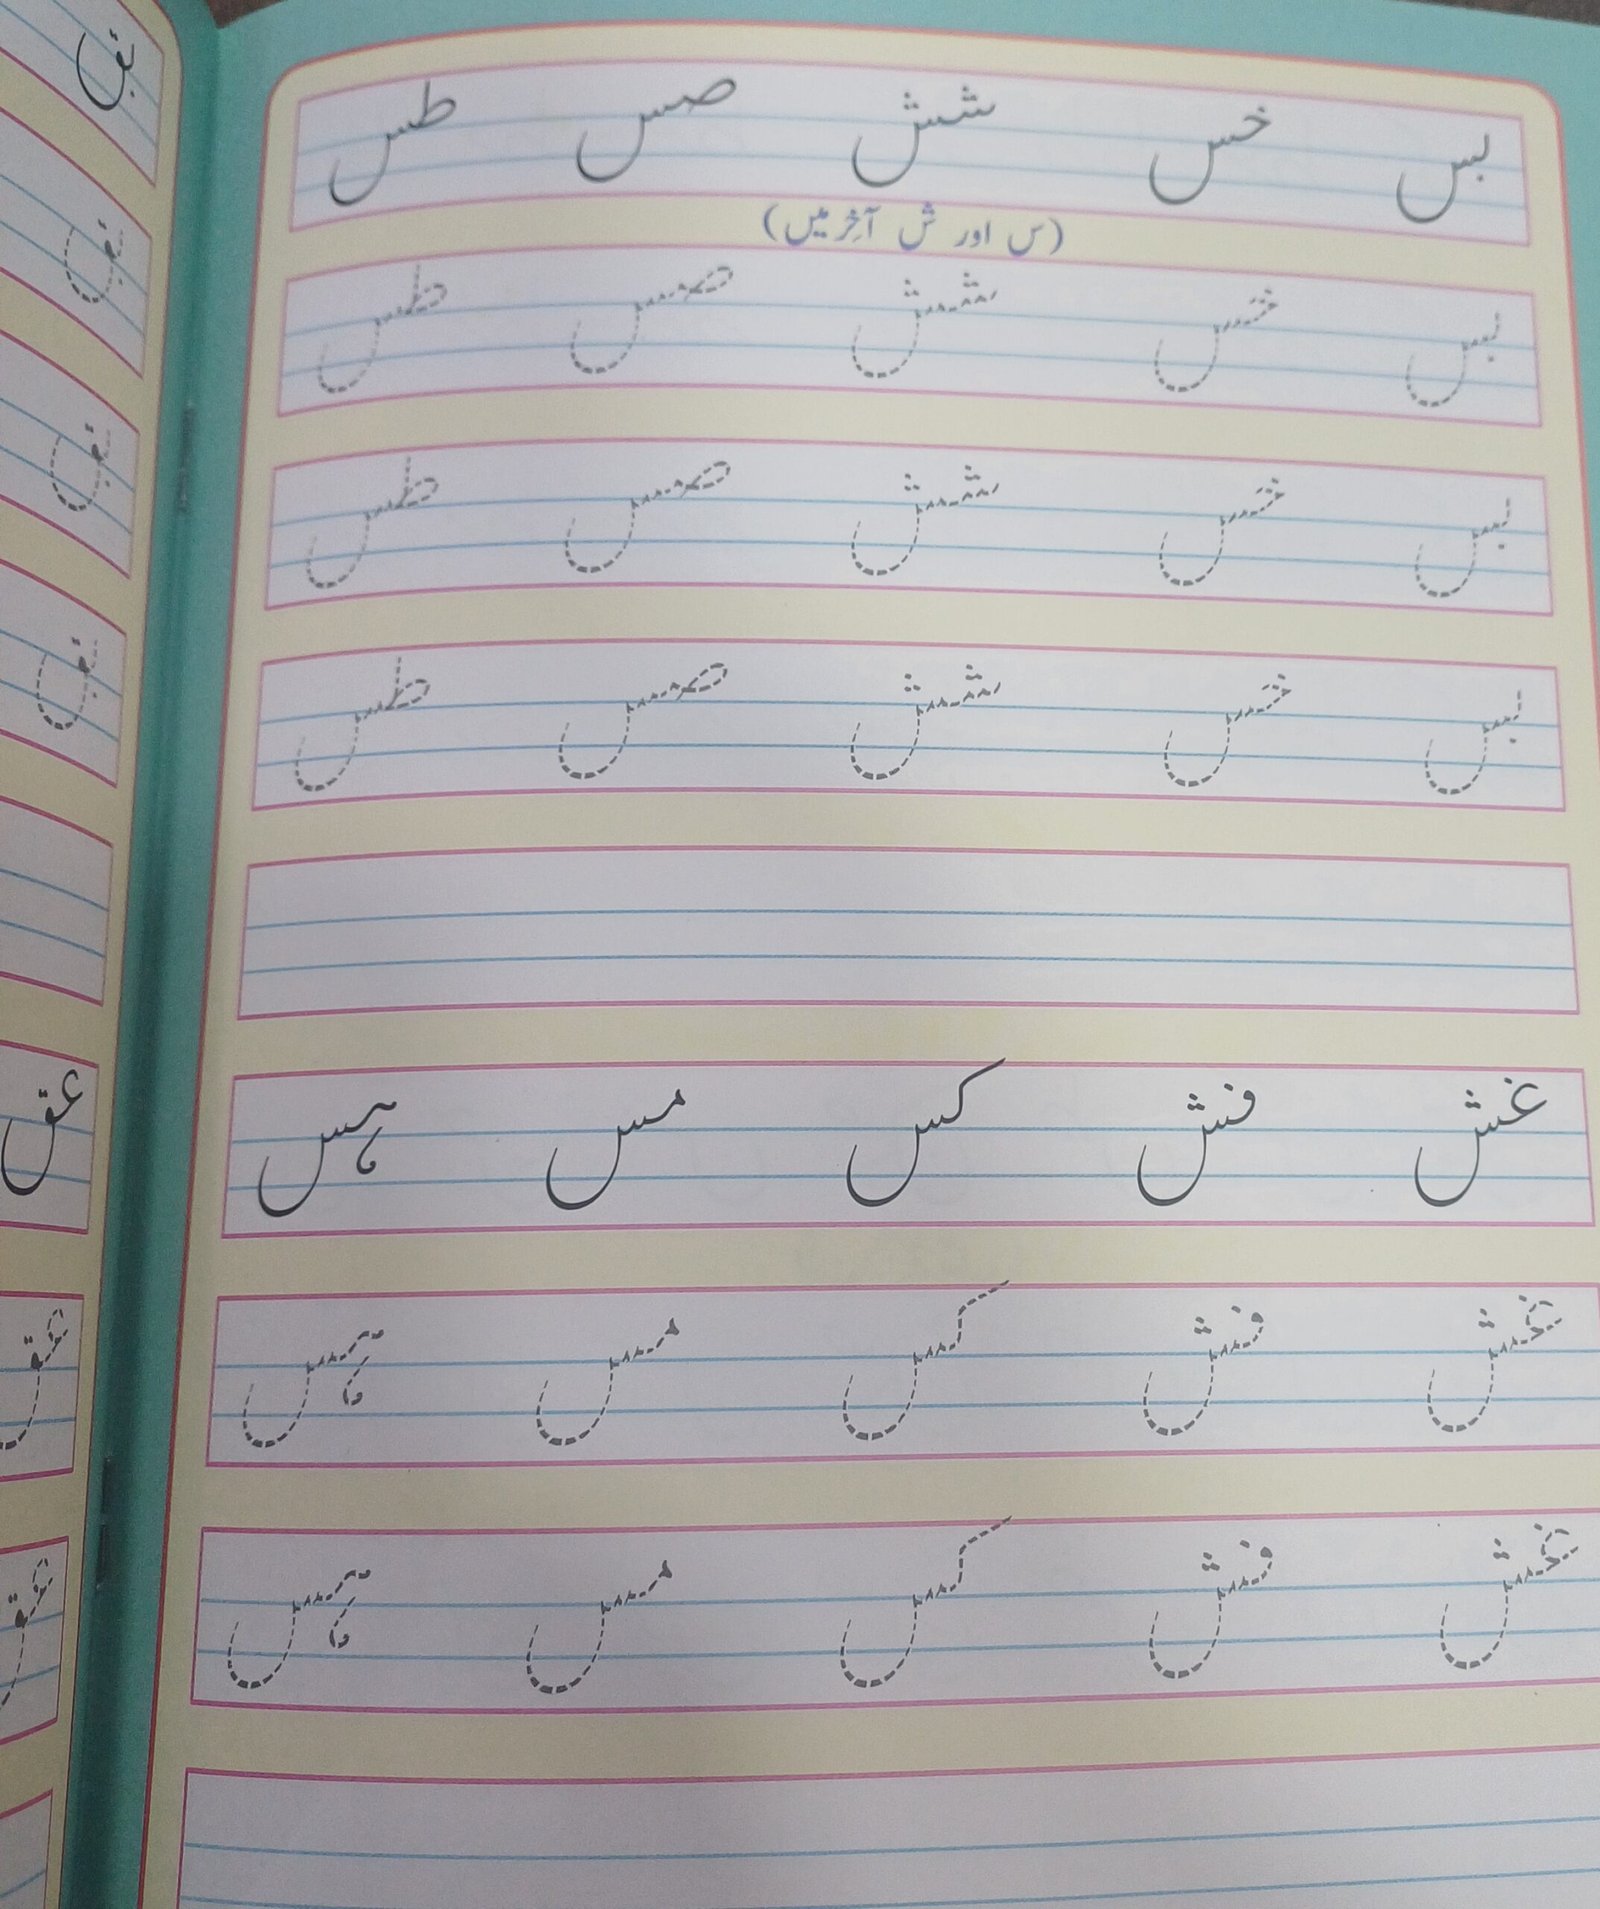 بس خس شش صس طس
(س اور ش آخر میں)
بس خس شش صس طس
بس خس شش صس طس
بس خس شش صس طس
غش فش کس مس ہس
غش فش کس مس ہس
غش فش کس مس ہس
عق